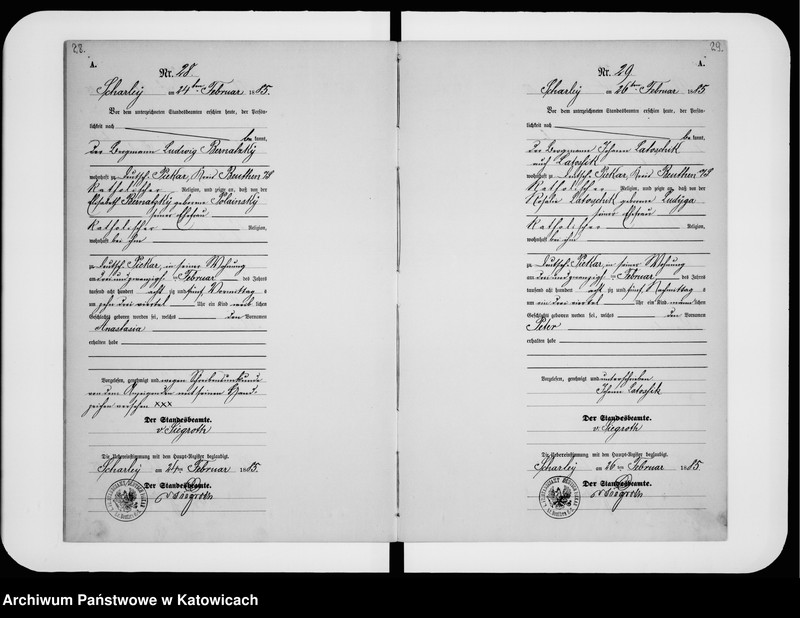 28.
A.
Nr. 28
Scharley am 24ten Februar 1885.
Vor dem unterzeichneten Standesbeamten erschien heute, der Persön-
lichkeit nach
be kannt,
der Bergmann Ludwig Bernatzky
wohnhaft zu Deutsch Piekar, Kreis Beuthen O/S
katholischer Religion, und zeigte an, daß von der
Elisabeth Bernatzky geborene Polainsky
seiner Ehefrau
katholischer Religion,
wohnhaft bei ihm
zu Deutsch Piekar, in seiner Wohnung
am drei und zwanzigsten Februar des Jahres
tausend acht hundert acht zig und fünf Vormittags
um zehn drei viertel Uhr ein Kind weib lichen
Geschlechts geboren worden sei, welches den Vornamen
Anastasia
erhalten habe
Vorgelesen, genehmigt und wegen Schreibensunkunde
von dem Anzeigenden mit seinem Hand-
zeichen versehen xxx
Der Standesbeamte.
v. Siegroth
Die Uebereinstimmung mit dem Haupt-Register beglaubigt.
Scharley am 24ten Februar 1885.
Der Standesbeamte.
v. Siegroth
29.
A.
Nr. 29
Scharley am 26ten Februar 1885
Vor dem unterzeichneten Standesbeamten erschien heute, der Persön-
lichkeit nach
be kannt,
der Bergmann Johann Latoschik
auch Latossik
wohnhaft zu Deutsch Piekar, Kreis Beuthen O/S
katholischer Religion, und zeigte an, daß von der
Rosalie Latoschik geborene Ludyga
seiner Ehefrau
katholischer Religion,
wohnhaft bei ihm
zu Deutsch Piekar, in seiner Wohnung
am drei und zwanzigsten Februar des Jahres
tausend acht hundert acht zig und fünf Nachmittags
um ein drei viertel Uhr ein Kind männ lichen
Geschlechts geboren worden sei, welches den Vornamen
Peter
erhalten habe
Vorgelesen, genehmigt und unterschrieben
Johann Latossik
Der Standesbeamte.
v. Siegroth
Die Uebereinstimmung mit dem Haupt-Register beglaubigt.
Scharley am 26ten Februar 1885.
Der Standesbeamte.
v. Siegroth
Archiwum Państwowe w Katowicach